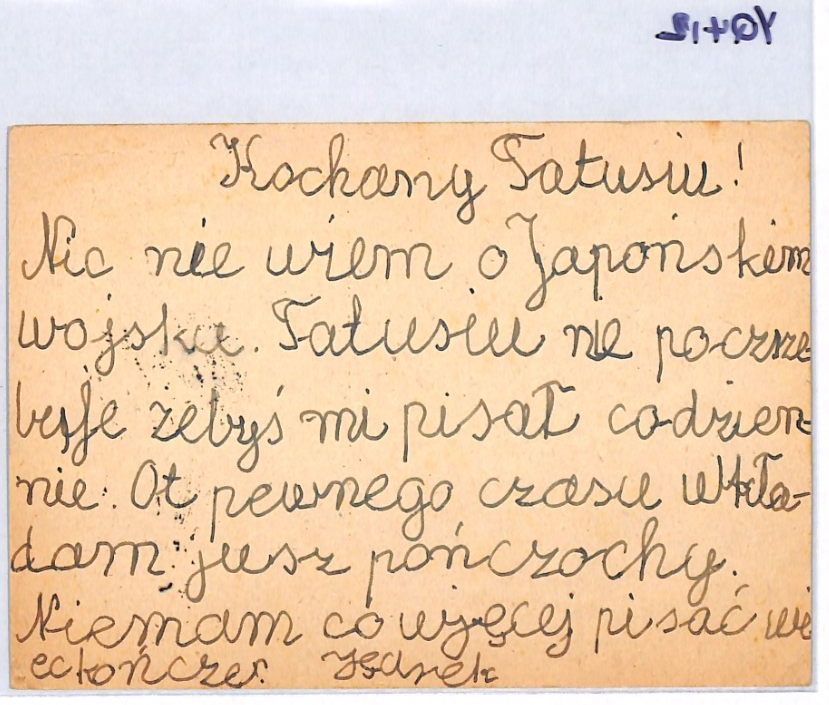 Kochany Tatusiu!
Nic nie wiem o Japońskim
wojsku. Tatusiu nie poczrze
żebyś mi pisał codzien-
nie. Ot pewnego czasu wkła-
dam jusz pończochy.
Niemam co wjęcej pisać wi
ec kończe. Jędrek